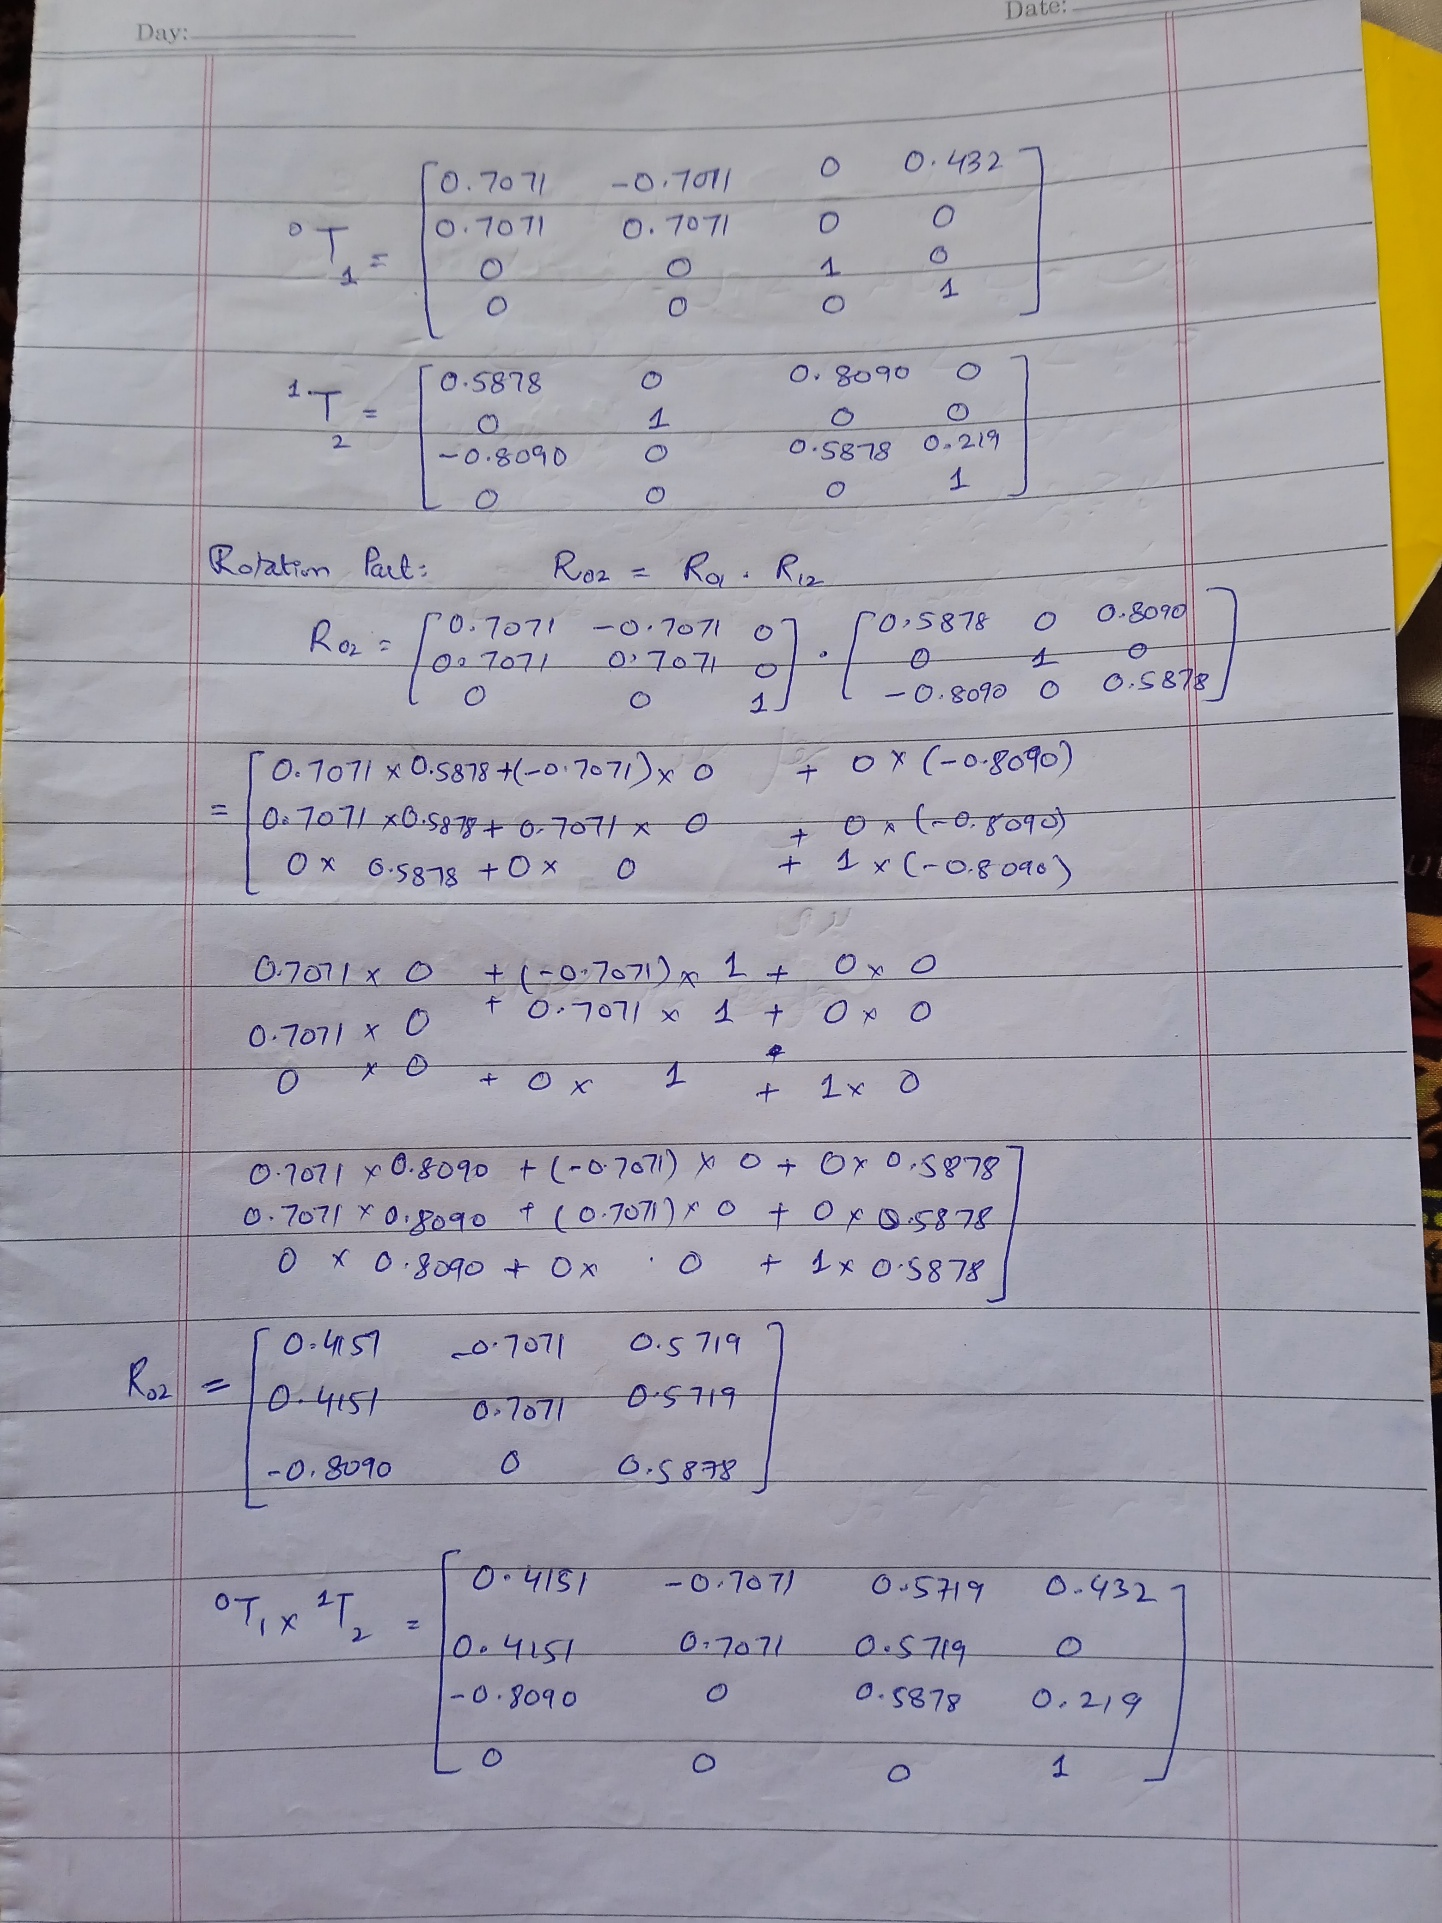 Day: Date:
⁰T₁ = [ 0.7071 -0.7071 0 0.432
0.7071 0.7071 0 0
0 0 1 0
0 0 0 1 ]
¹T₂ = [ 0.5878 0 0.8090 0
0 1 0 0
-0.8090 0 0.5878 0.219
0 0 0 1 ]
Rotation Part: R₀₂ = R₀₁ . R₁₂
R₀₂ = [ 0.7071 -0.7071 0 ] . [ 0.5878 0 0.8090
0.7071 0.7071 0 0 1 0
0 0 1 ] -0.8090 0 0.5878 ]
= [ 0.7071 x 0.5878 + (-0.7071) x 0 + 0 x (-0.8090)
0.7071 x 0.5878 + 0.7071 x 0 + 0 x (-0.8090)
0 x 0.5878 + 0 x 0 + 1 x (-0.8090)
0.7071 x 0 + (-0.7071) x 1 + 0 x 0
0.7071 x 0 + 0.7071 x 1 + 0 x 0
0 x 0 + 0 x 1 + 1 x 0
0.7071 x 0.8090 + (-0.7071) x 0 + 0 x 0.5878
0.7071 x 0.8090 + (0.7071) x 0 + 0 x 0.5878
0 x 0.8090 + 0 x 0 + 1 x 0.5878 ]
R₀₂ = [ 0.4151 -0.7071 0.5719
0.4151 0.7071 0.5719
-0.8090 0 0.5878 ]
⁰T₁ x ¹T₂ = [ 0.4151 -0.7071 0.5719 0.432
0.4151 0.7071 0.5719 0
-0.8090 0 0.5878 0.219
0 0 0 1 ]